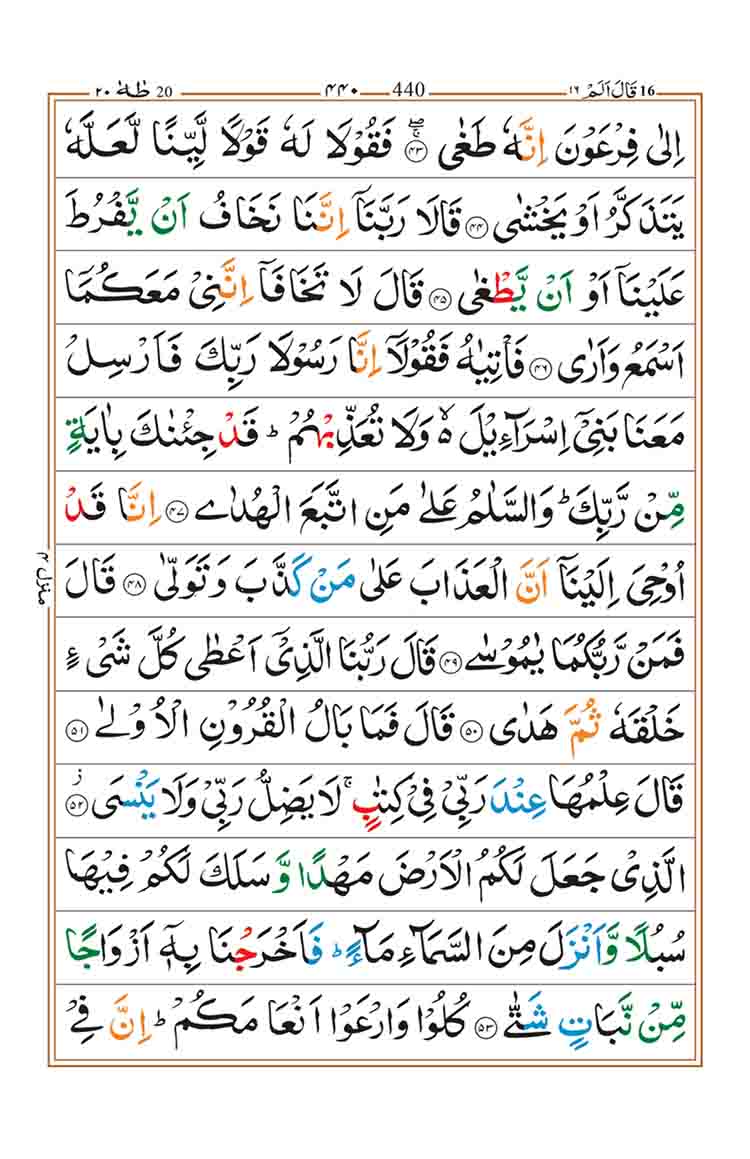 16 قَالَ اَلَمْ ١٦ 440 ٤٤٠ 20 طٰهٰ ٢٠
اِلٰى فِرْعَوْنَ اِنَّهٗ طَغٰى ﴿٤٣﴾ فَقُوْلَا لَهٗ قَوْلًا لَّيِّنًا لَّعَلَّهٗ
يَتَذَكَّرُ اَوْ يَخْشٰى ﴿٤٤﴾ قَالَا رَبَّنَاۤ اِنَّنَا نَخَافُ اَنْ يَّفْرُطَ
عَلَيْنَاۤ اَوْ اَنْ يَّطْغٰى ﴿٤٥﴾ قَالَ لَا تَخَافَاۤ اِنَّنِىْ مَعَكُمَا
اَسْمَعُ وَاَرٰى ﴿٤٦﴾ فَاْتِيٰهُ فَقُوْلَاۤ اِنَّا رَسُوْلَا رَبِّكَ فَاَرْسِلْ
مَعَنَا بَنِىْۤ اِسْرَآءِيْلَ ۙ وَلَا تُعَذِّبْهُمْ ؕ قَدْ جِئْنٰكَ بِاٰيَةٍ
مِّنْ رَّبِّكَ ؕ وَالسَّلٰمُ عَلٰى مَنِ اتَّبَعَ الْهُدٰى ﴿٤٧﴾ اِنَّا قَدْ
اُوْحِىَ اِلَيْنَاۤ اَنَّ الْعَذَابَ عَلٰى مَنْ كَذَّبَ وَتَوَلّٰى ﴿٤٨﴾ قَالَ
فَمَنْ رَّبُّكُمَا يٰمُوْسٰى ﴿٤٩﴾ قَالَ رَبُّنَا الَّذِىْۤ اَعْطٰى كُلَّ شَىْءٍ
خَلْقَهٗ ثُمَّ هَدٰى ﴿٥٠﴾ قَالَ فَمَا بَالُ الْقُرُوْنِ الْاُوْلٰى ﴿٥١﴾
قَالَ عِلْمُهَا عِنْدَ رَبِّىْ فِىْ كِتٰبٍ ۚ لَا يَضِلُّ رَبِّىْ وَلَا يَنْسَى ﴿٥٢﴾ ز
الَّذِىْ جَعَلَ لَكُمُ الْاَرْضَ مَهْدًا وَّسَلَكَ لَكُمْ فِيْهَا
سُبُلًا وَّاَنْزَلَ مِنَ السَّمَآءِ مَآءً ؕ فَاَخْرَجْنَا بِهٖۤ اَزْوَاجًا
مِّنْ نَّبَاتٍ شَتّٰى ﴿٥٣﴾ كُلُوْا وَارْعَوْا اَنْعَامَكُمْ ؕ اِنَّ فِىْ
منزل ٤